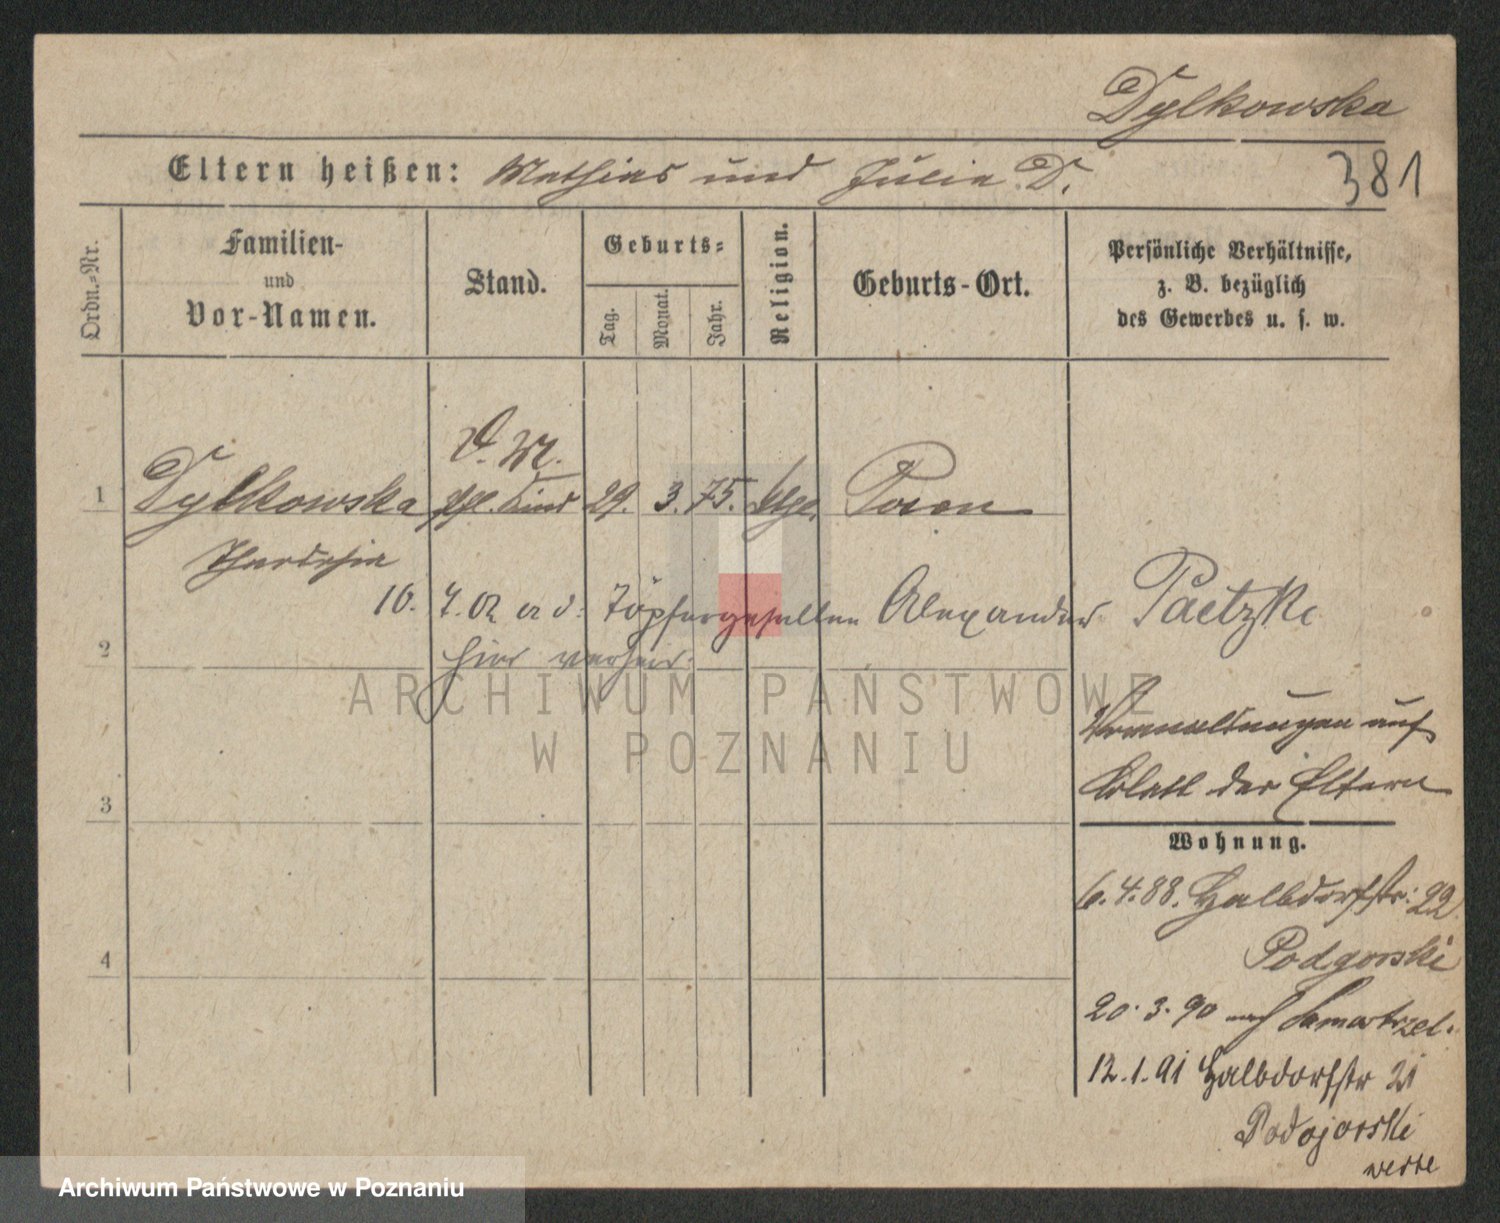 Dylkowska
Eltern heißen: Mathias und Julia D.
381
Ordn.-Nr.
Familien-
und
Vor-Namen.
Stand.
Geburts-
Tag.
Monat.
Jahr.
Religion.
Geburts-Ort.
Persönliche Verhältnisse,
z. B. bezüglich
des Gewerbes u. s. w.
1 Dylkowska Kind 29. 3. 75. Posen
10. 7. 02 Töpfergesellen Alexander Paetzke
hier verheir.
2
3
4
auf
Blatt der Eltern
Wohnung.
6.4.88. Halbdorfstr: 22
Podgorski
20.3.90 nach
12.1.91 Halbdorfstr 21
Podgorski
ARCHIWUM PAŃSTWOWE
W POZNANIU
Archiwum Państwowe w Poznaniu